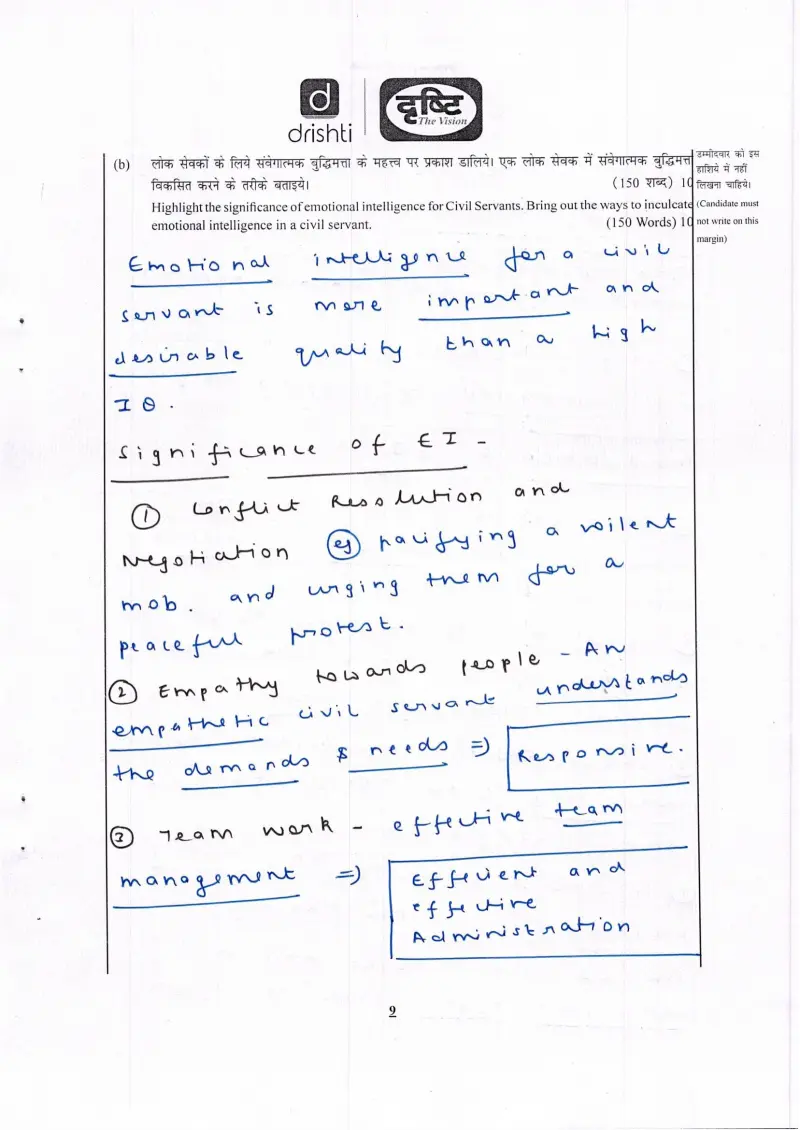 d
drishti
दृष्टि
The Vision
(b) लोक सेवकों के लिये संवेगात्मक बुद्धिमत्ता के महत्त्व पर प्रकाश डालिये। एक लोक सेवक में संवेगात्मक बुद्धिमत्ता
विकसित करने के तरीके बताइये। (150 शब्द) 10
Highlight the significance of emotional intelligence for Civil Servants. Bring out the ways to inculcate
emotional intelligence in a civil servant. (150 Words) 10
उम्मीदवार को इस
हाशिये में नहीं
लिखना चाहिये।
(Candidate must
not write on this
margin)
Emotional intelligence for a civil
servant is more important and
desirable quality than a high
IQ.
Significance of EI -
① Conflict Resolution and
Negotiation eg pacifying a voilent
mob. and urging them for a
peaceful protest.
② Empathy towards people - An
empathetic civil servant understands
the demands & needs => Responsive.
③ Team work - effective team
management => Efficient and
effective
Administration
9